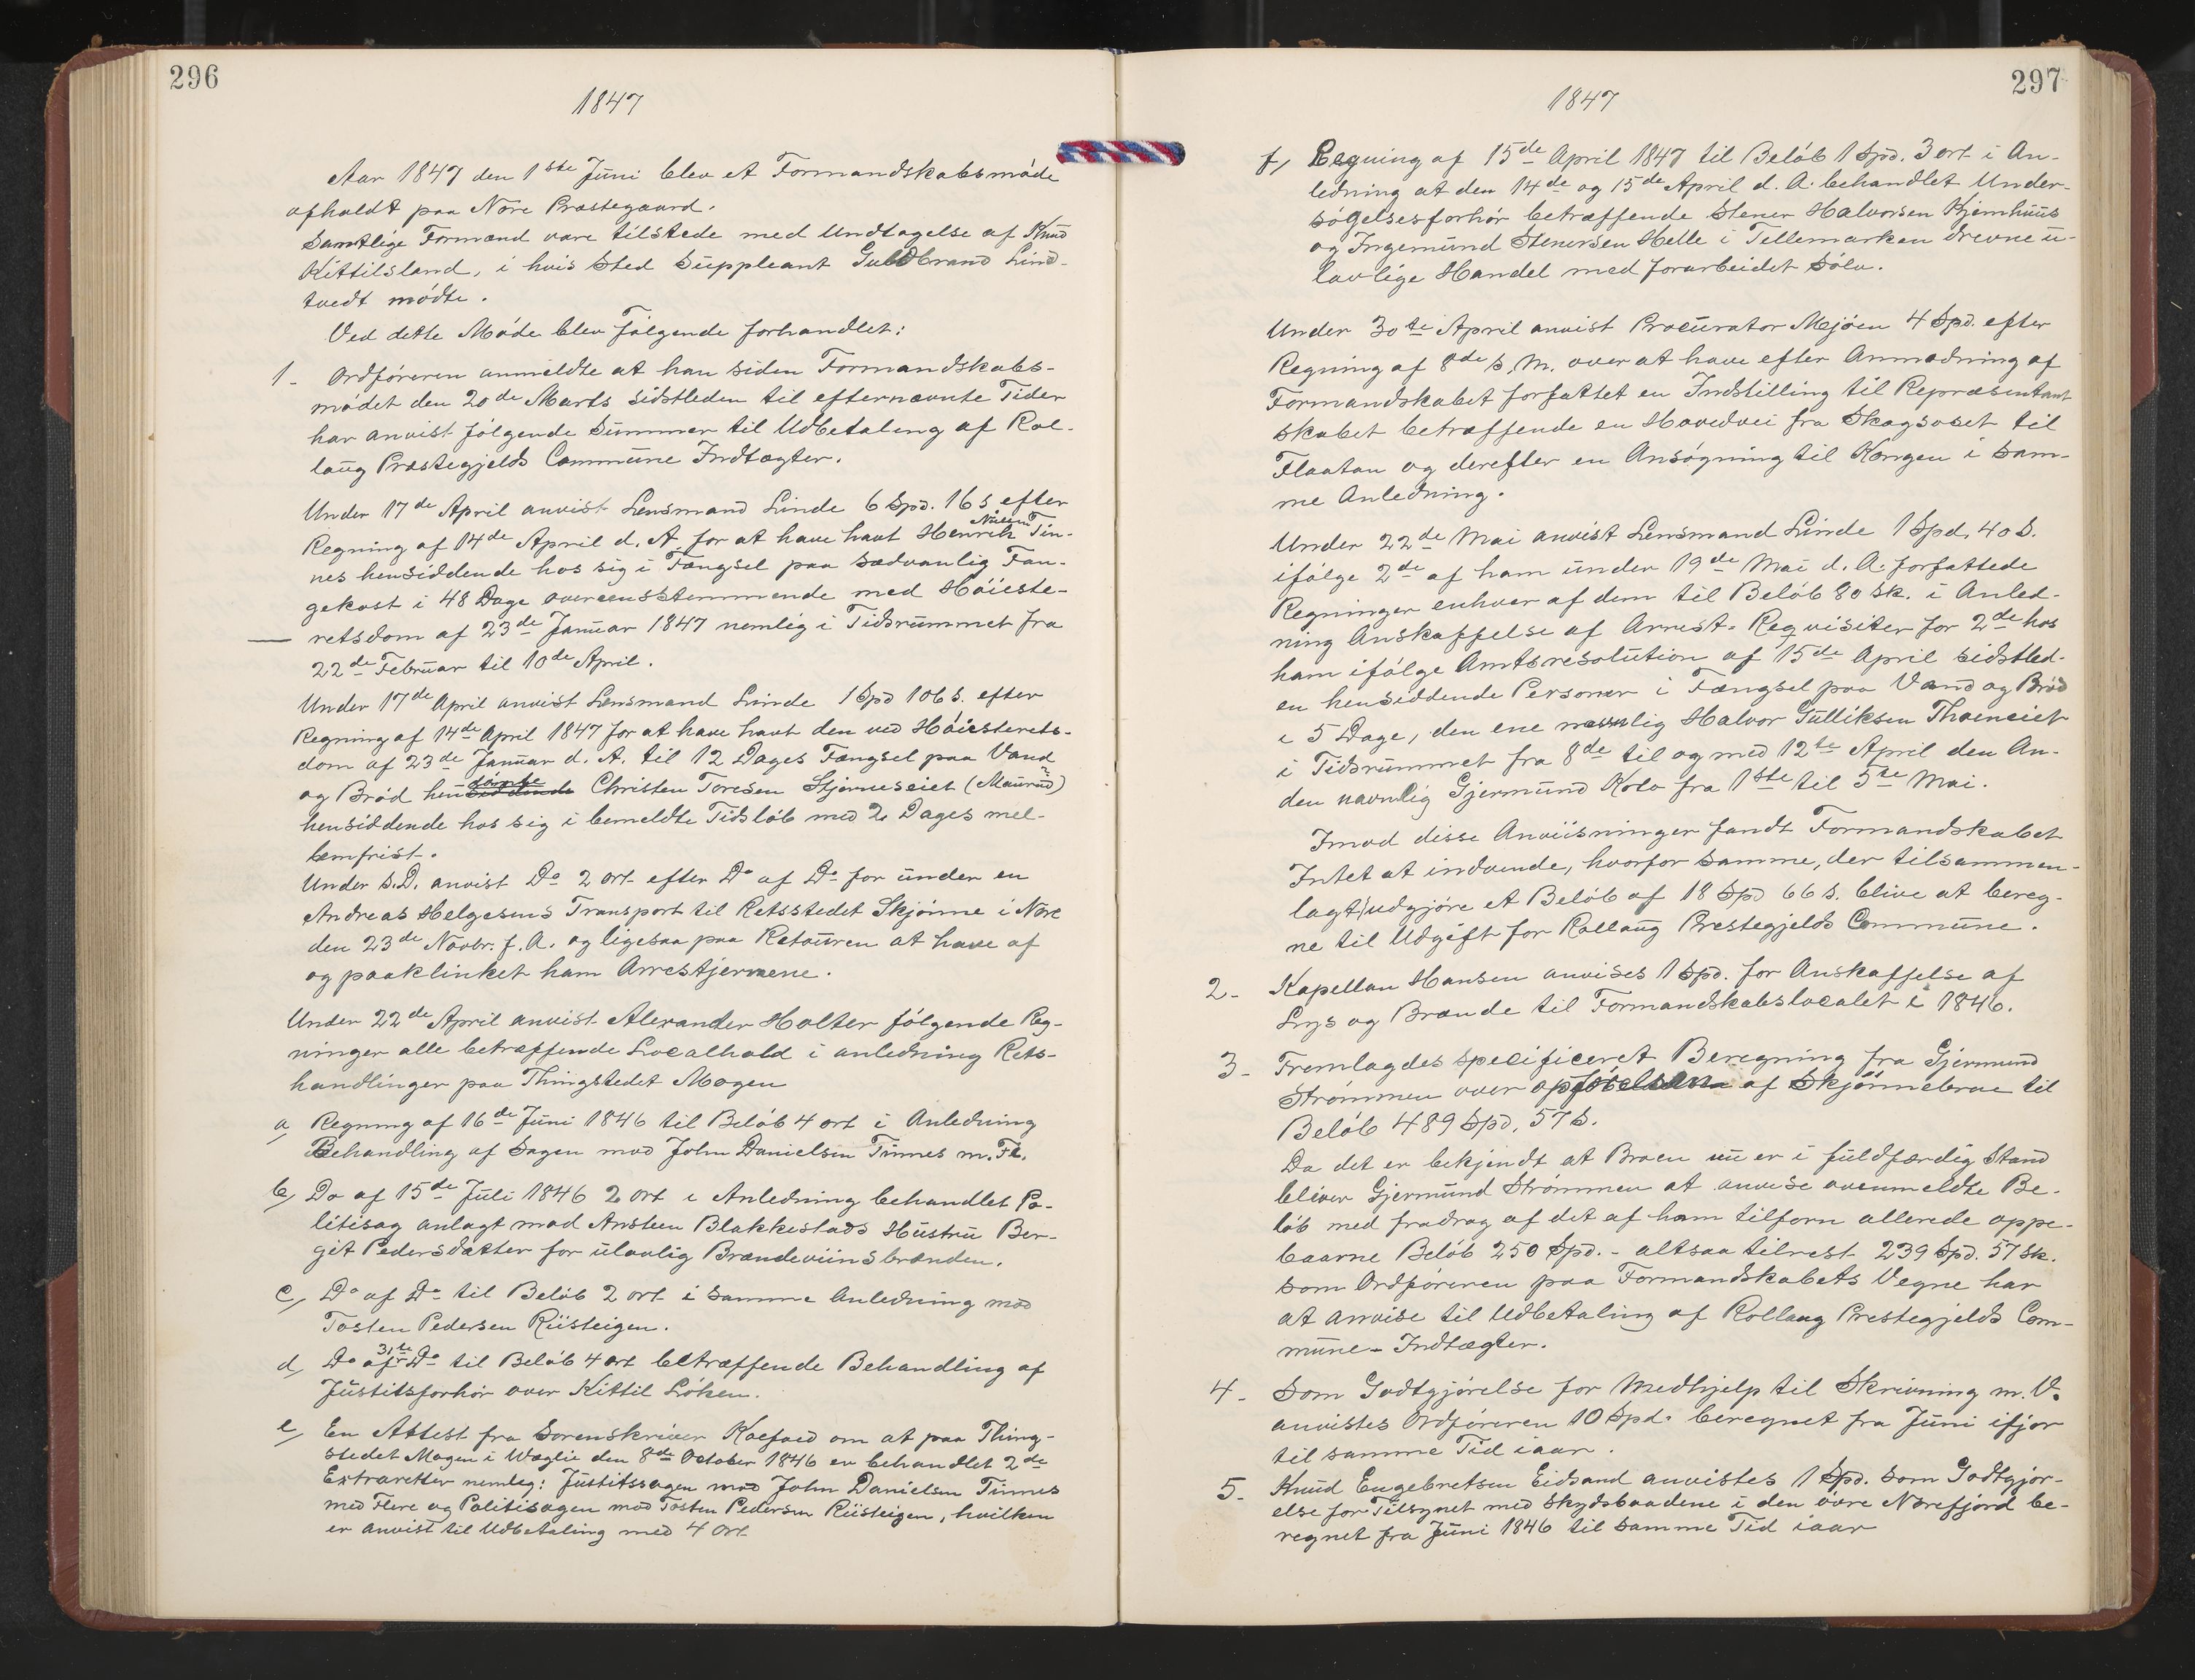 296
1847
Aar 1847 den 1ste Juni blev et Formandskabsmøde
afholdt paa Nore Præstegaard.
Samtlige Formænd vare tilstede med Undtagelse af Knud
Kittilsland, i hvis Sted Suppleant Guldbrand Lind-
tvedt mødte.
Ved dette Møde blev følgende forhandlet:
1- Ordføreren anmeldte at han siden Formandskabs-
mødet den 20de Marts sidstleden til efternævnte Tider
har anvist følgende Summer til Udbetaling af Rol-
laug Præstegjelds Commune Indtægter.
Under 17de April anvist Lensmand Linde 6 Spd. 16 s efter
Regning af 14de April d. A. for at have havt Henrik Nilsen Tin-
nes hensiddende hos sig i Fængsel paa sædvanlig Fan-
gekost i 48 Dage overeensstemmende med Høieste-
retsdom af 23de Januar 1847 nemlig i Tidsrummet fra
22de Februar til 10de April.
Under 17de April anvist Lensmand Linde 1 Spd 106 s. efter
Regning af 14de April 1847 for at have havt den ved Høiesterets-
dom af 23de Januar d. A. til 12 Dages Fængsel paa Vand
og Brød hensiddende dømte Christen Toresen Stjerneseiet (Maurud)
hensiddende hos sig i bemeldte Tidsløb med 2 Dages mel-
lemfrist.
Under s.D. anvist Do 2 ort efter Do af Do for under en
Andreas Helgesens Transport til Retsstedet Skjønne i Nore
den 23de Novbr. f. A. og ligesaa paa Retouren at have af
og paaklinket ham Arrestjernene.
Under 22de April anvist Alexander Holter følgende Reg-
ninger alle betræffende Localhold i anledning Rets-
handlinger paa Thingstedet Mogen
a, Regning af 16de Juni 1846 til Beløb 4 ort i Anledning
Behandling af Sagen mod John Danielsen Tinnes m. Fl.
b, Do af 15de Juli 1846 2 ort i Anledning behandlet Po-
litisag anlagt mod Ansteen Blakkestads Hustru Ber-
git Pedersdatter for ulovlig Brændeviinsbrænden.
c, Do af Do til Beløb 2 ort i samme Anledning mod
Tosten Pedersen Riisteigen.
d, Do af 31te Do til Beløb 4 ort betræffende Behandling af
Justitsforhør over Kittil Løken.
e, En Attest fra Sorenskriver Koefoed om at paa Thing-
stedet Mogen i Wæglie den 8de October 1846 er behandlet 2de
Extraretter nemleg: Justitssagen mod John Danielsen Tinnes
med Flere og Politisagen mod Tosten Pedersen Riisteigen, hvilken
er anvist til Udbetaling med 4 ort
297
1847
f, Regning af 15de April 1847 til Beløb 1 Spd. 3 ort i An-
ledning at den 14de og 15de April d. A. behandlet Under-
søgelsesforhør betræffende Stener Halvorsen Kjemhuus
og Ingemund Stenersen Helle i Tellemarken drevne u-
lovlige Handel med forarbeidet Sølv.
Under 30te April anvist Procurator Mejøen 4 Spd. efter
Regning af 8de s. M. over at have efter Anmodning af
Formandskabet forfattet en Indstilling til Repræsentant
skabet betræffende en Hovedvei fra Skagsoset til
Flaatan og derefter en Ansøgning til Kongen i sam-
me Anledning.
Under 22de Mai anvist Lensmand Linde 1 Spd. 40 s.
ifølge 2de af ham under 19de Mai d. A. forfattede
Regninger enhver af dem til Beløb 80 sk. i Anled-
ning Anskaffelse af Arrest-Requisiter for 2de hos
ham ifølge Amtsresolution af 15de April sidstled-
en hensiddende Personer i Fængsel paa Vand og Brød
i 5 Dage, den ene navnlig Halvor Gulliksen Thoeneiet
i Tidsrummet fra 8de til og med 12te April den An-
den navnlig Gjermund Kolo fra 1ste til 5te Mai.
Imod disse Anviisninger fandt Formandskabet
Intet at indvende, hvorfor samme, der tilsammen-
lagt udgjøre et Beløb af 18 Spd 66 s. blive at bereg-
ne til Udgift for Rollaug Prestegjelds Commune.
2- Kapellan Hansen anvises 1 Spd. for Anskaffelse af
Lys og Brænde til Formandskabslocalet i 1846.
3- Fremlagdes specificeret Beregning fra Gjermund
Strømmen over opførelsen af Skjønnebroe til
Beløb 489 Spd. 57 s.
Da det er bekjendt at Broen nu er i fuldfærdig Stand
bliver Gjermund Strømmen at anvise ovenmeldte Be-
løb med fradrag af det af ham tilforn allerede oppe-
baarne Beløb 250 Spd. - altsaa tilrest 239 Spd. 57 sk.
som Ordføreren paa Formandskabets Vegne har
at anvise til Udbetaling af Rollaug Prestegjelds Com-
mune-Indtægter.
4- Som Godtgjørelse for Medhjelp til Skrivning m. V.
anvistes Ordføreren 10 Spd. beregnet fra Juni ifjor
til samme Tid iaar.
5- Knud Engebretsen Eidsand anvistes 1 Spd. som Godtgjør-
else for Tilsynet med Skydsbaadene i den øvre Norefjord be-
regnet fra Juni 1846 til samme Tid iaar